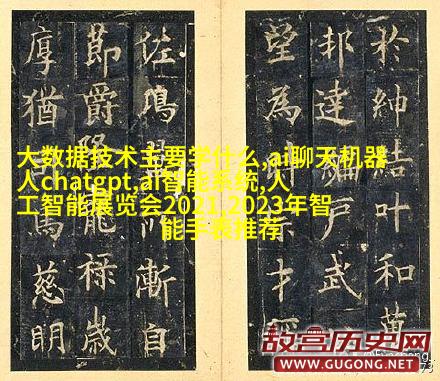 於紳結叶和黃
邦達編戶武
望為才
佐鴻漸自
節爵祿歲
厚猶慈明
大数据技术主要学什么,ai聊天机器
人chatgpt,ai智能系统,人
工智能展览会2021,2023年智
能手表推荐
故宫历史网
WWW.GUGONG.NET